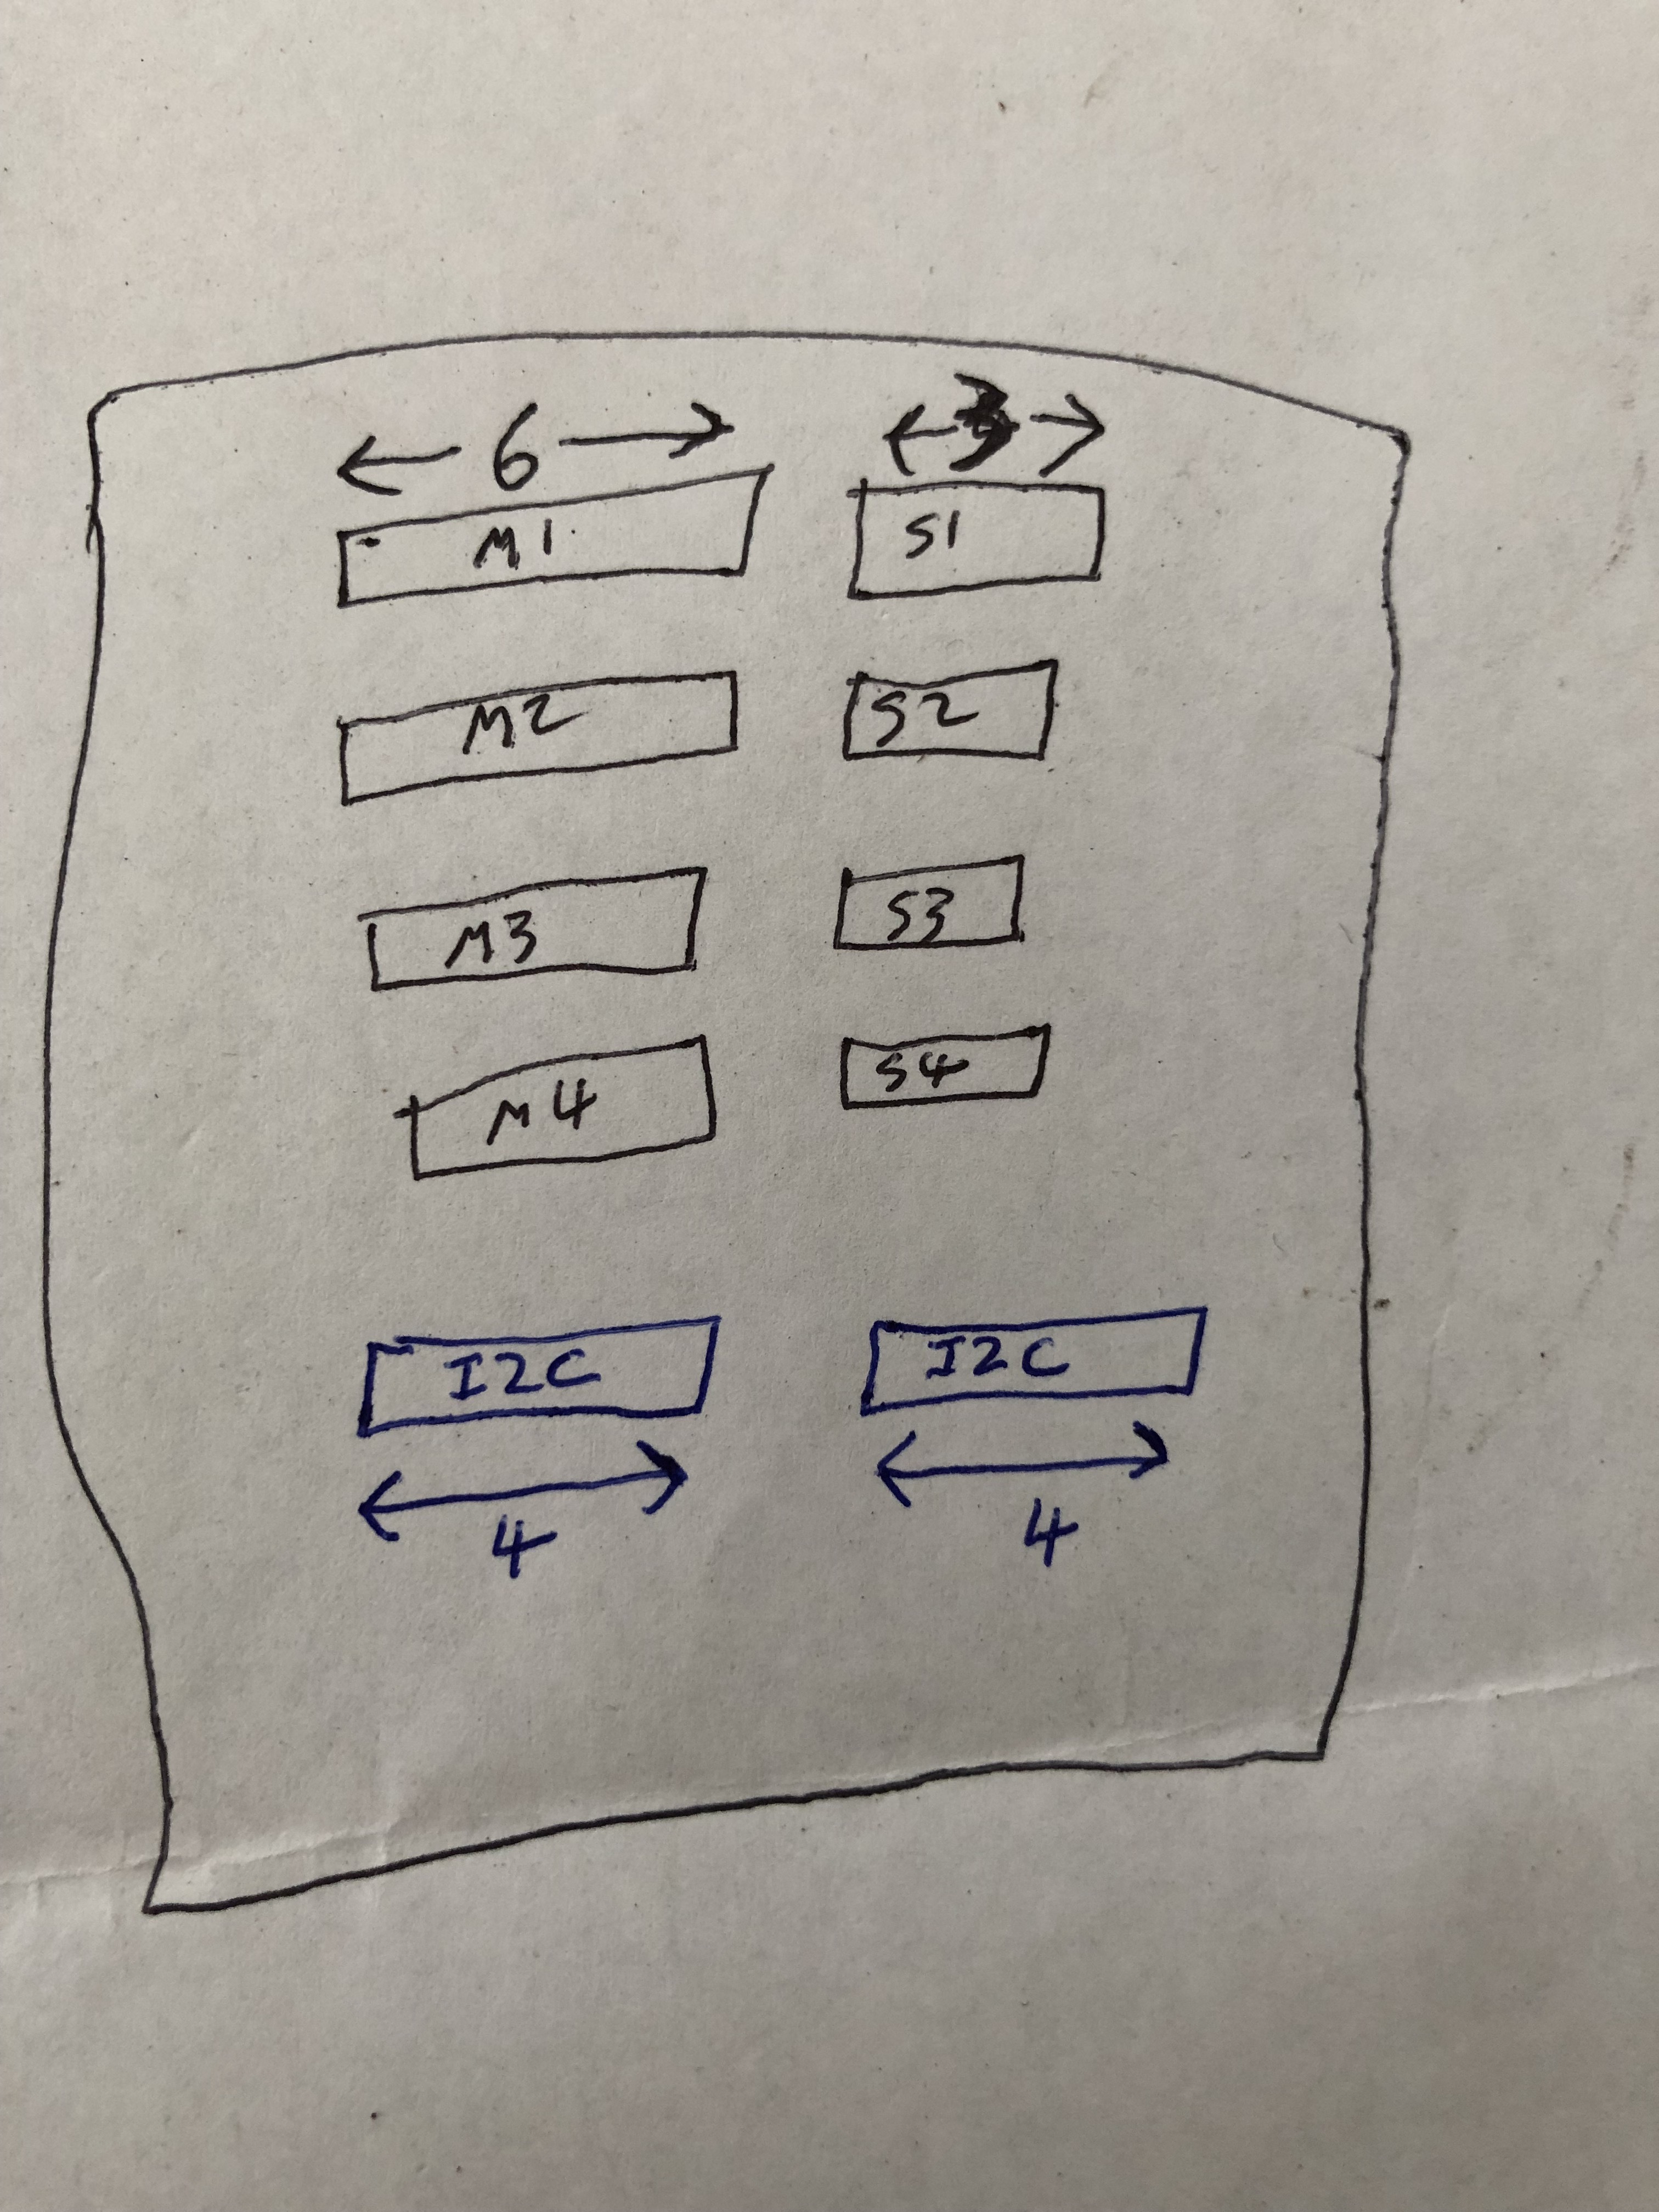 6 3
M1 S1
M2 S2
M3 S3
M4 S4
I2C I2C
4 4